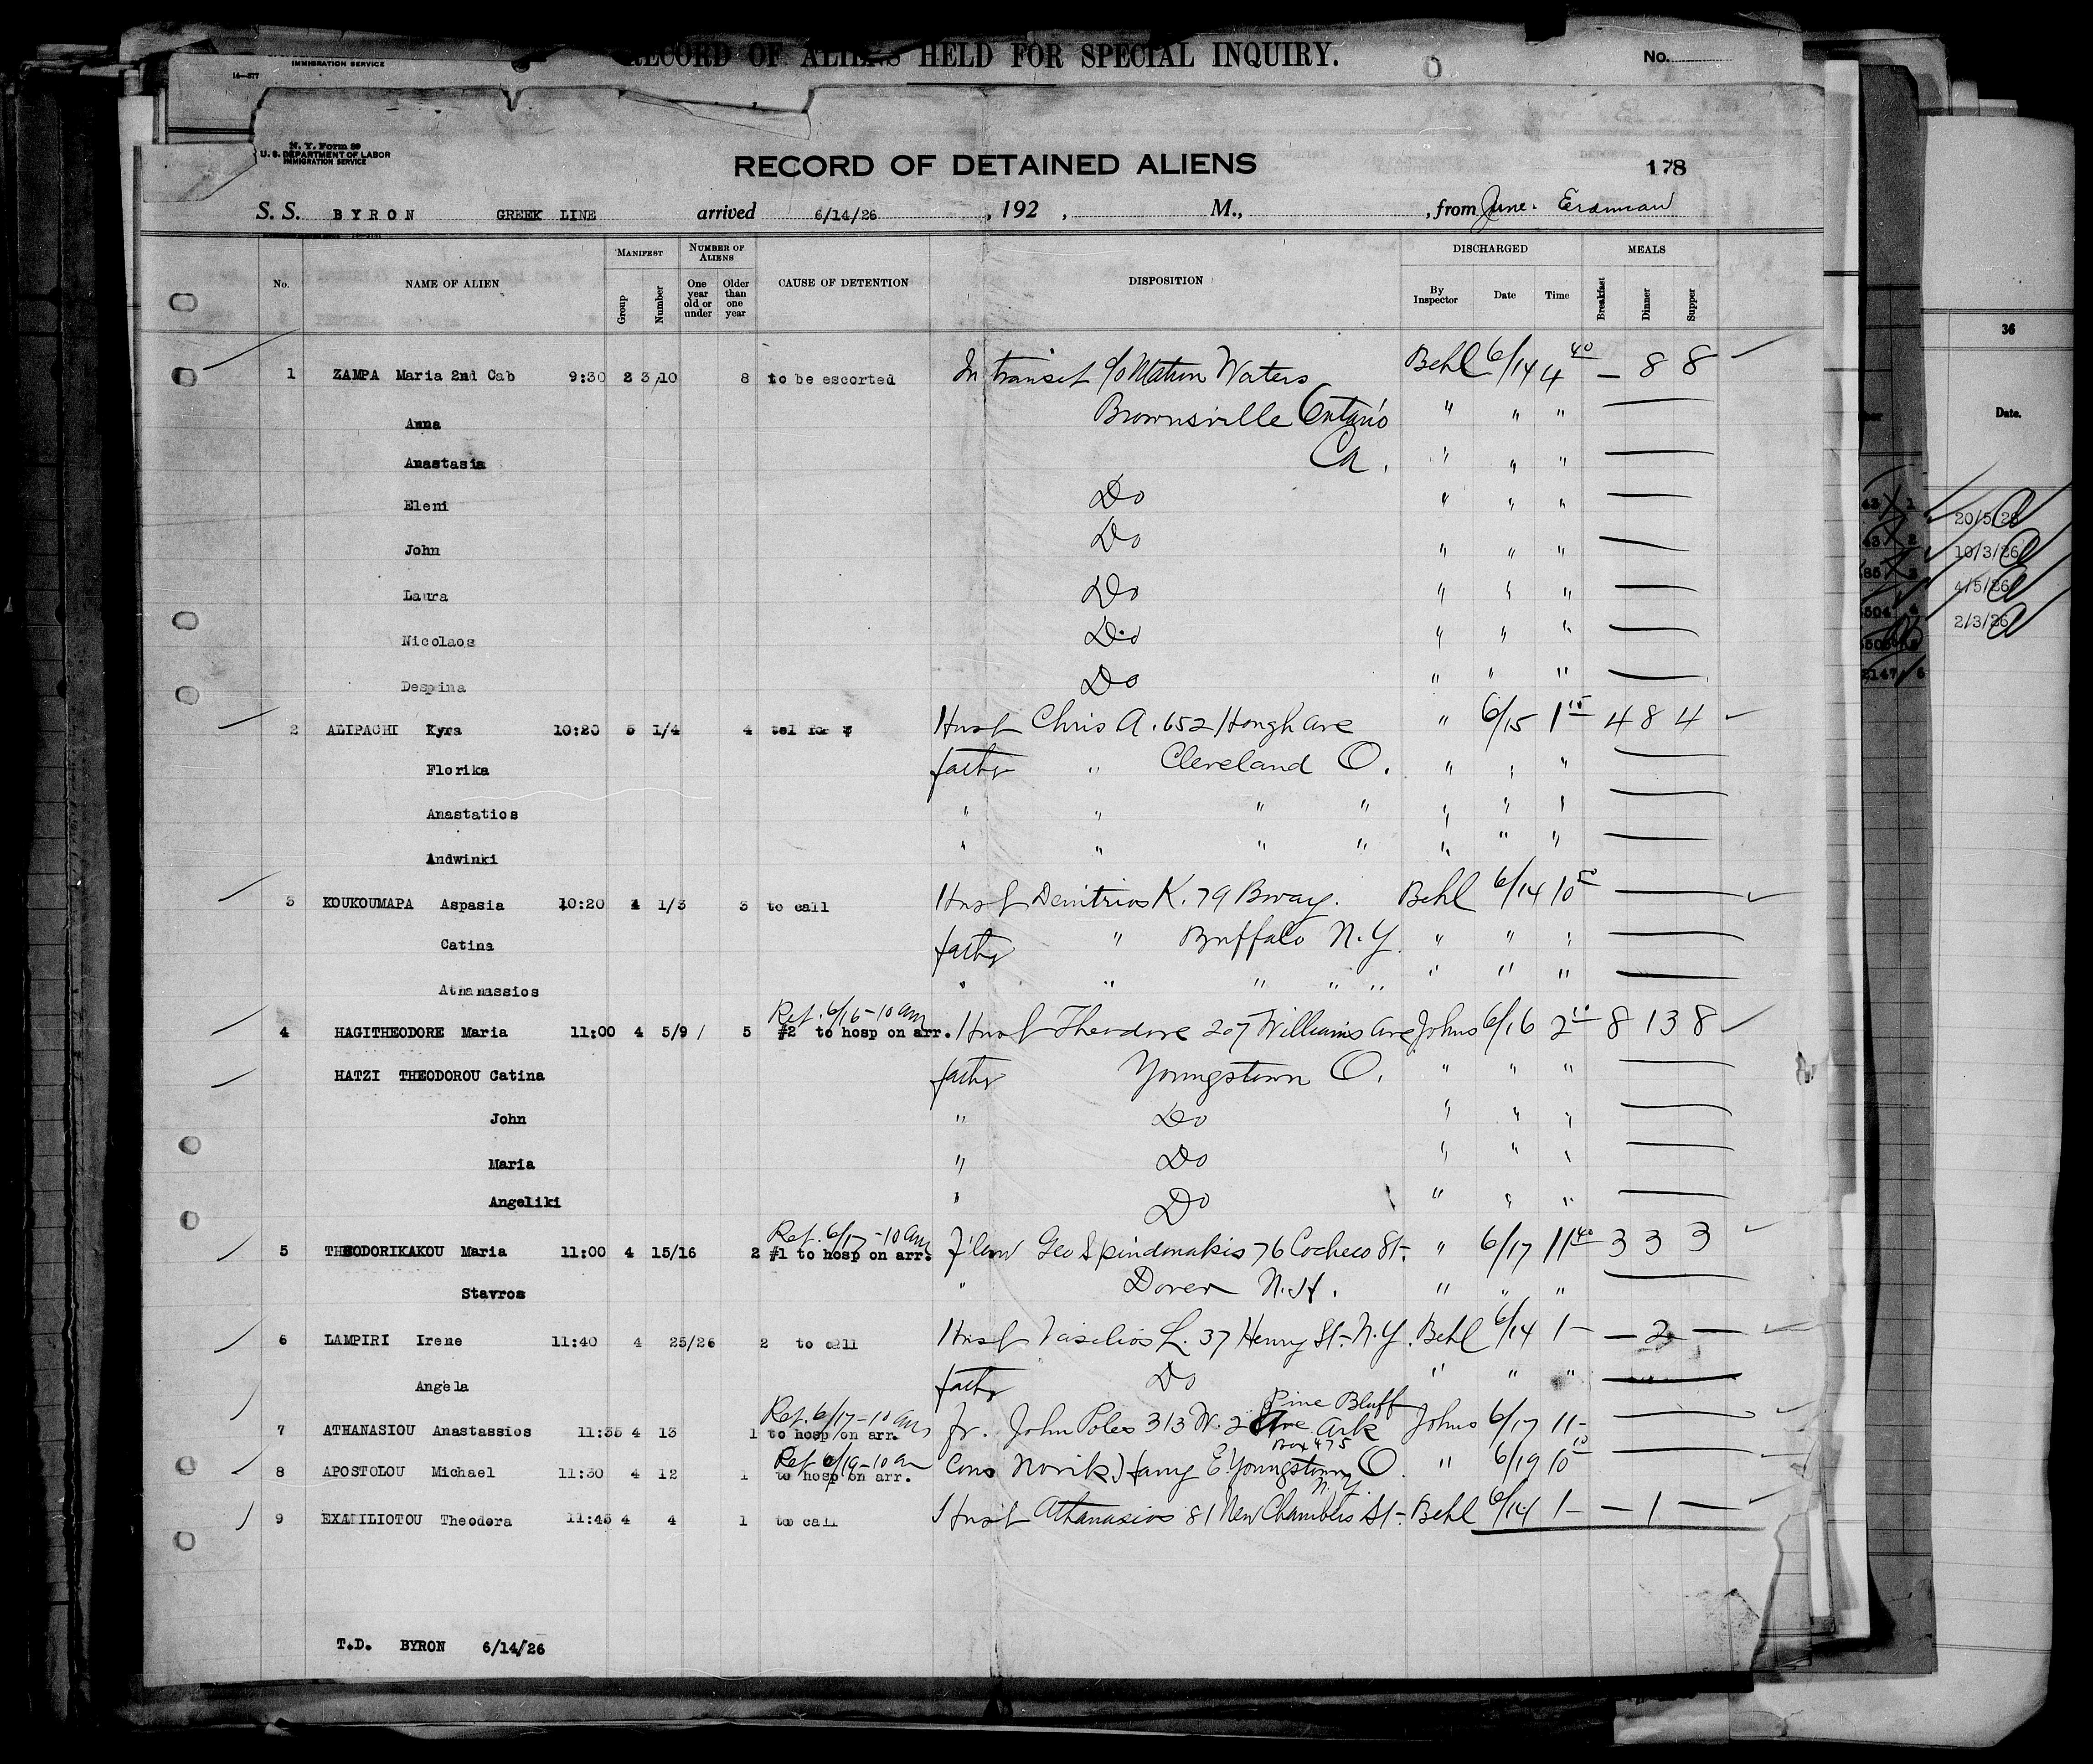 IMMIGRATION SERVICE
14—577
RECORD OF ALIENS HELD FOR SPECIAL INQUIRY.
No.
N. Y. Form 89
U. S. DEPARTMENT OF LABOR
IMMIGRATION SERVICE
RECORD OF DETAINED ALIENS
178
S. S. BYRON GREEK LINE arrived 6/14/26, 192 , M., , from June. Erdman
No. NAME OF ALIEN MANIFEST Group Number NUMBER OF ALIENS One year old or under Older than one year CAUSE OF DETENTION DISPOSITION DISCHARGED By Inspector Date Time MEALS Breakfast Dinner Supper
1 ZAMPA Maria 2nd Cab 9:30 2 3/10 8 to be escorted In transit c/o Waters Behl 6/14 4 40 — 8 8
Anna Brownsville Ontario " " "
Anastasia Ca. " " "
Eleni Do " " "
John Do " " "
Laura Do " " "
Nicolaos Do " " "
Despina Do " " "
2 ALIPACHI Kyra 10:20 5 1/4 4 tel for Husb Chris A. 652 Hough Ave " 6/15 1 10 4 8 4
Florika father " Cleveland O. " " "
Anastatios " " " " " " "
Andwinki " " " " " " "
3 KOUKOUMAPA Aspasia 10:20 4 1/3 3 to call Husb Demitrios K. 79 Bway. Behl 6/14 10 50
Catina father " Buffalo N.Y. " " "
Athanassios " " " " " " " "
Ret. 6/16-10 am
4 HAGITHEODORE Maria 11:00 4 5/9 5 #2 to hosp on arr. Husb Theodore 207 Williams Ave Johns 6/16 2 10 8 13 8
HATZI THEODOROU Catina father Youngstown O. " " "
John " Do " " "
Maria " Do " " "
Angeliki " Do " " "
Ret. 6/17-10 am
5 THEODORIKAKOU Maria 11:00 4 15/16 2 #1 to hosp on arr. Geo Spindonakis 76 Cocheco St. " 6/17 11 40 3 3 3
Stavros " Dover N.H. " " "
6 LAMPIRI Irene 11:40 4 25/26 2 to call Husb Vasilios L. 37 Henry St. N.Y. Behl 6/14 1 — — 2 —
Angela father Do " " "
Ret. 6/17-10 am Pine Bluff
7 ATHANASIOU Anastassios 11:35 4 13 1 to hosp on arr. Fr. John Poles 313 W. 2 Ave Ark Johns 6/17 11-
Ret 6/19-10 am Box 475
8 APOSTOLOU Michael 11:30 4 12 1 to hosp on arr. Cons Harry E. Youngstown O. " 6/19 10 10
N.Y.
9 EXAMILIOTOU Theodora 11:45 4 4 1 to call Husb Athanasios 81 New Chambers St- Behl 6/14 1- — 1 —
T.D. BYRON 6/14/26
36
Date.
20/5/26
10/3/26
4/5/26
2/3/26